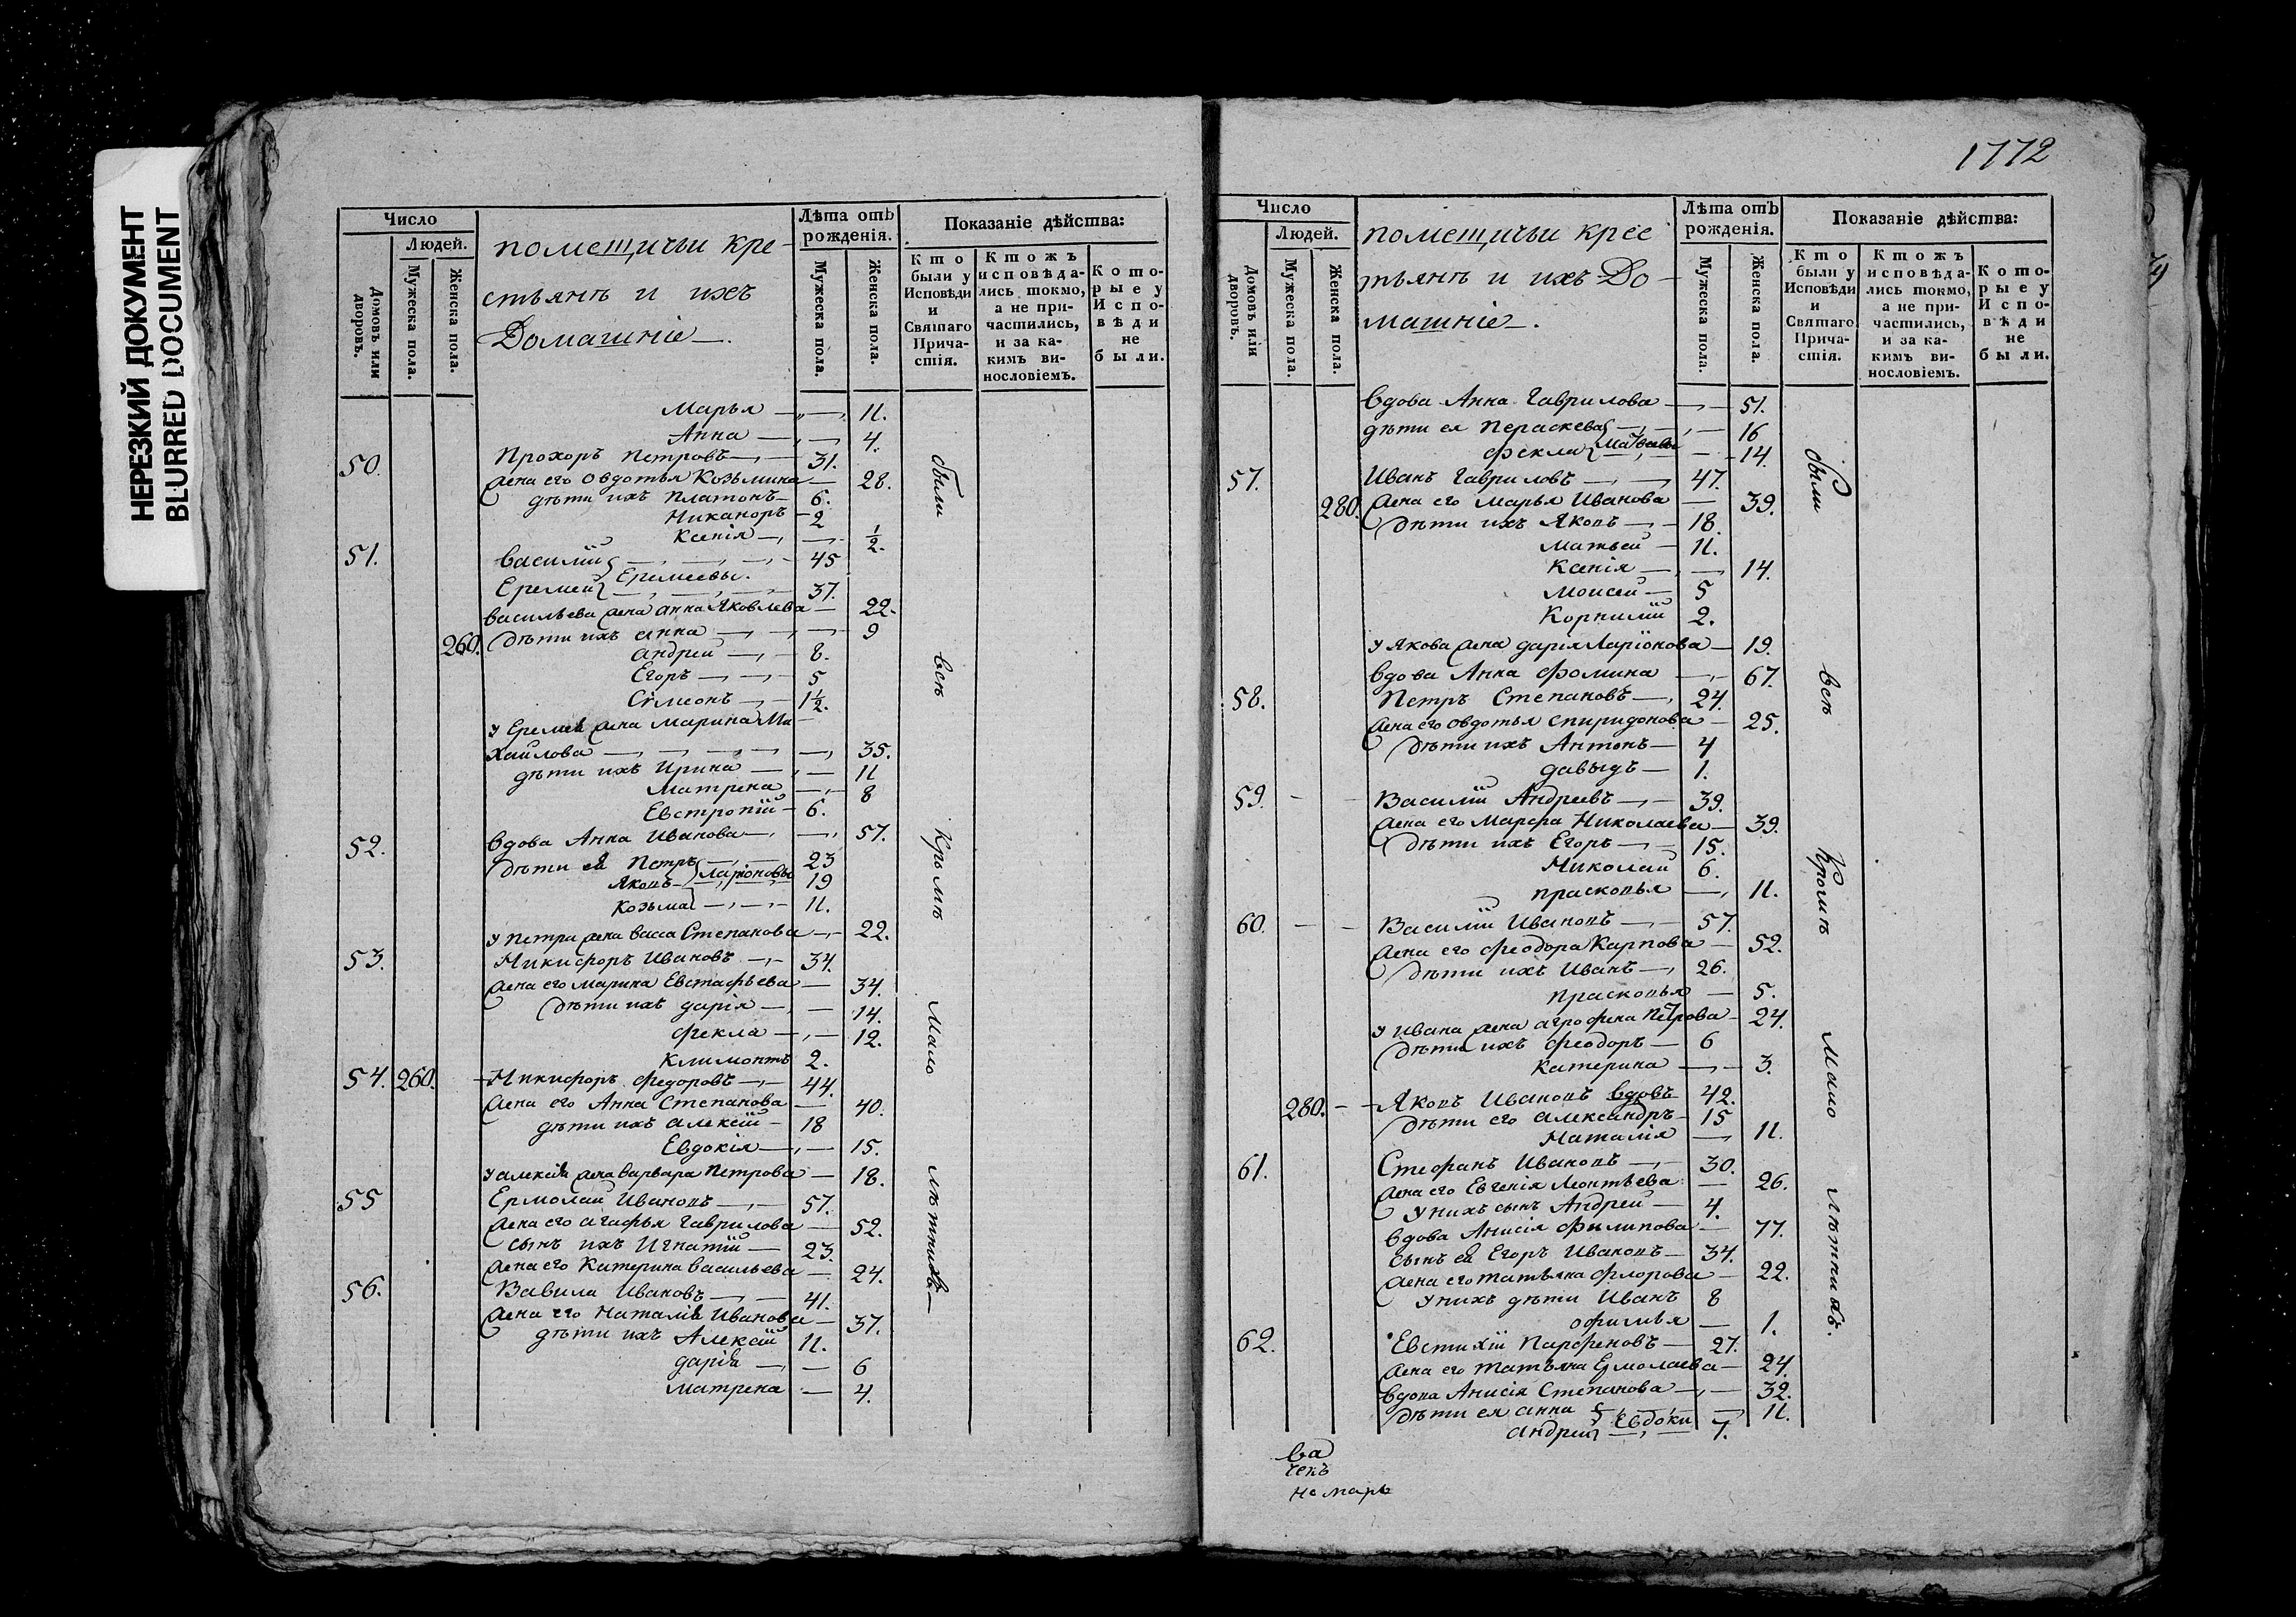 НЕРЕЗКИЙ ДОКУМЕНТ
BLURRED DOCUMENT
Число
Людей.
Домовъ или дворовъ.
Мужеска пола.
Женска пола.
помещичьи кре-
стьянъ и ихъ
Домашніе.
Лѣта отъ рожденія.
Мужеска пола.
Женска пола.
Показаніе дѣйства:
Кто были у Исповѣди и Святаго Прича-стія.
Ктожъ исповѣда-лись токмо, а не при-частились, и за ка-кимъ ви-нословіемъ.
Кото-рые у Испо-вѣди не были.
Марья 11.
Анна 4.
50. Прохоръ Петровъ 31.
жена его Овдотья Козьмина 28.
дѣти ихъ Платонъ 6.
Никаноръ 2
Ксенія 1/2.
51. Василій 45
Еремеевы.
Еремей 37.
Васильева жена Анна Яковлева 22.
260. дѣти ихъ Анна 9
Андрей 8.
Егоръ 5
Симеонъ 1 1/2.
у Еремея жена Марина Ми-
хайлова 35.
дѣти ихъ Ирина 11
Матрена 8
Евстропій 6.
52. вдова Анна Иванова 57.
дѣти ея Петръ 23
Яковъ Ларіоновы 19
Козьма 11.
у Петра жена Васса Степанова 22.
53. Никифоръ Ивановъ 34.
жена его Марина Евстафьева 34.
дѣти ихъ Дарія 14.
Фекла 12.
Климонтъ 2.
54. 260. Никифоръ Федоровъ 44.
жена его Анна Степанова 40.
дѣти ихъ Алексій 18
Евдокія 15.
у Алексія жена Варвара Петрова 18.
55 Ермолай Ивановъ 57.
жена его Агафья Гаврилова 52.
сынъ ихъ Игнатій 23.
жена его Катерина Васильева 24.
56. Вавила Ивановъ 41.
жена его Наталія Иванова 37.
дѣти ихъ Алексій 11.
Дарія 6
Матрена 4.
были всѣ кромѣ мало лѣтнихъ
1772
Число
Людей.
Домовъ или дворовъ.
Мужеска пола.
Женска пола.
помещичьи крес
тьянъ и ихъ До-
машніе.
Лѣта отъ рожденія.
Мужеска пола.
Женска пола.
Показаніе дѣйства:
Кто были у Исповѣди и Святаго Прича-стія.
Ктожъ исповѣда-лись токмо, а не при-частились, и за ка-кимъ ви-нословіемъ.
Кото-рые у Испо-вѣди не были.
вдова Анна Гаврилова 51.
дѣти ея Пераскева 16
Матвевы
Фекла 14.
57. Иванъ Гавриловъ 47.
280. жена его Марья Иванова 39.
дѣти ихъ Яковъ 18.
Матвей 11.
Ксенія 14.
Моисей 5
Корнилій 2.
у Якова жена Дарія Ларіонова 19.
вдова Анна Фомина 67.
58. Петръ Степановъ 24.
жена его Овдотья Спиридонова 25.
дѣти ихъ Антонъ 4
Давыдъ 1.
59. Василій Андреевъ 39.
жена его Марфа Николаева 39.
дѣти ихъ Егоръ 15.
Николай 6.
Прасковья 11.
60. Василій Ивановъ 57.
жена его Феодора Карпова 52.
дѣти ихъ Иванъ 26.
Прасковья 5.
у Ивана жена Агрофена Петрова 24.
дѣти ихъ Феодоръ 6
Катерина 3.
280. Яковъ Ивановъ вдовъ 42.
дѣти его Александръ 15
Наталія 11.
61. Стефанъ Ивановъ 30.
жена его Евгенія Леонтьева 26.
у нихъ сынъ Андрей 4.
вдова Анисія Филипова 77.
сынъ ея Егоръ Ивановъ 34.
жена его Татьяна Флорова 22.
у нихъ дѣти Иванъ 8
Офимья 1.
62. Евстихій Парфеновъ 27.
жена его Татьяна Ермолаева 24.
вдова Анисія Степанова 32.
дѣти ея Анна 11.
Евдоки
Андрей 7.
были всѣ кромѣ мало лѣтнихъ.